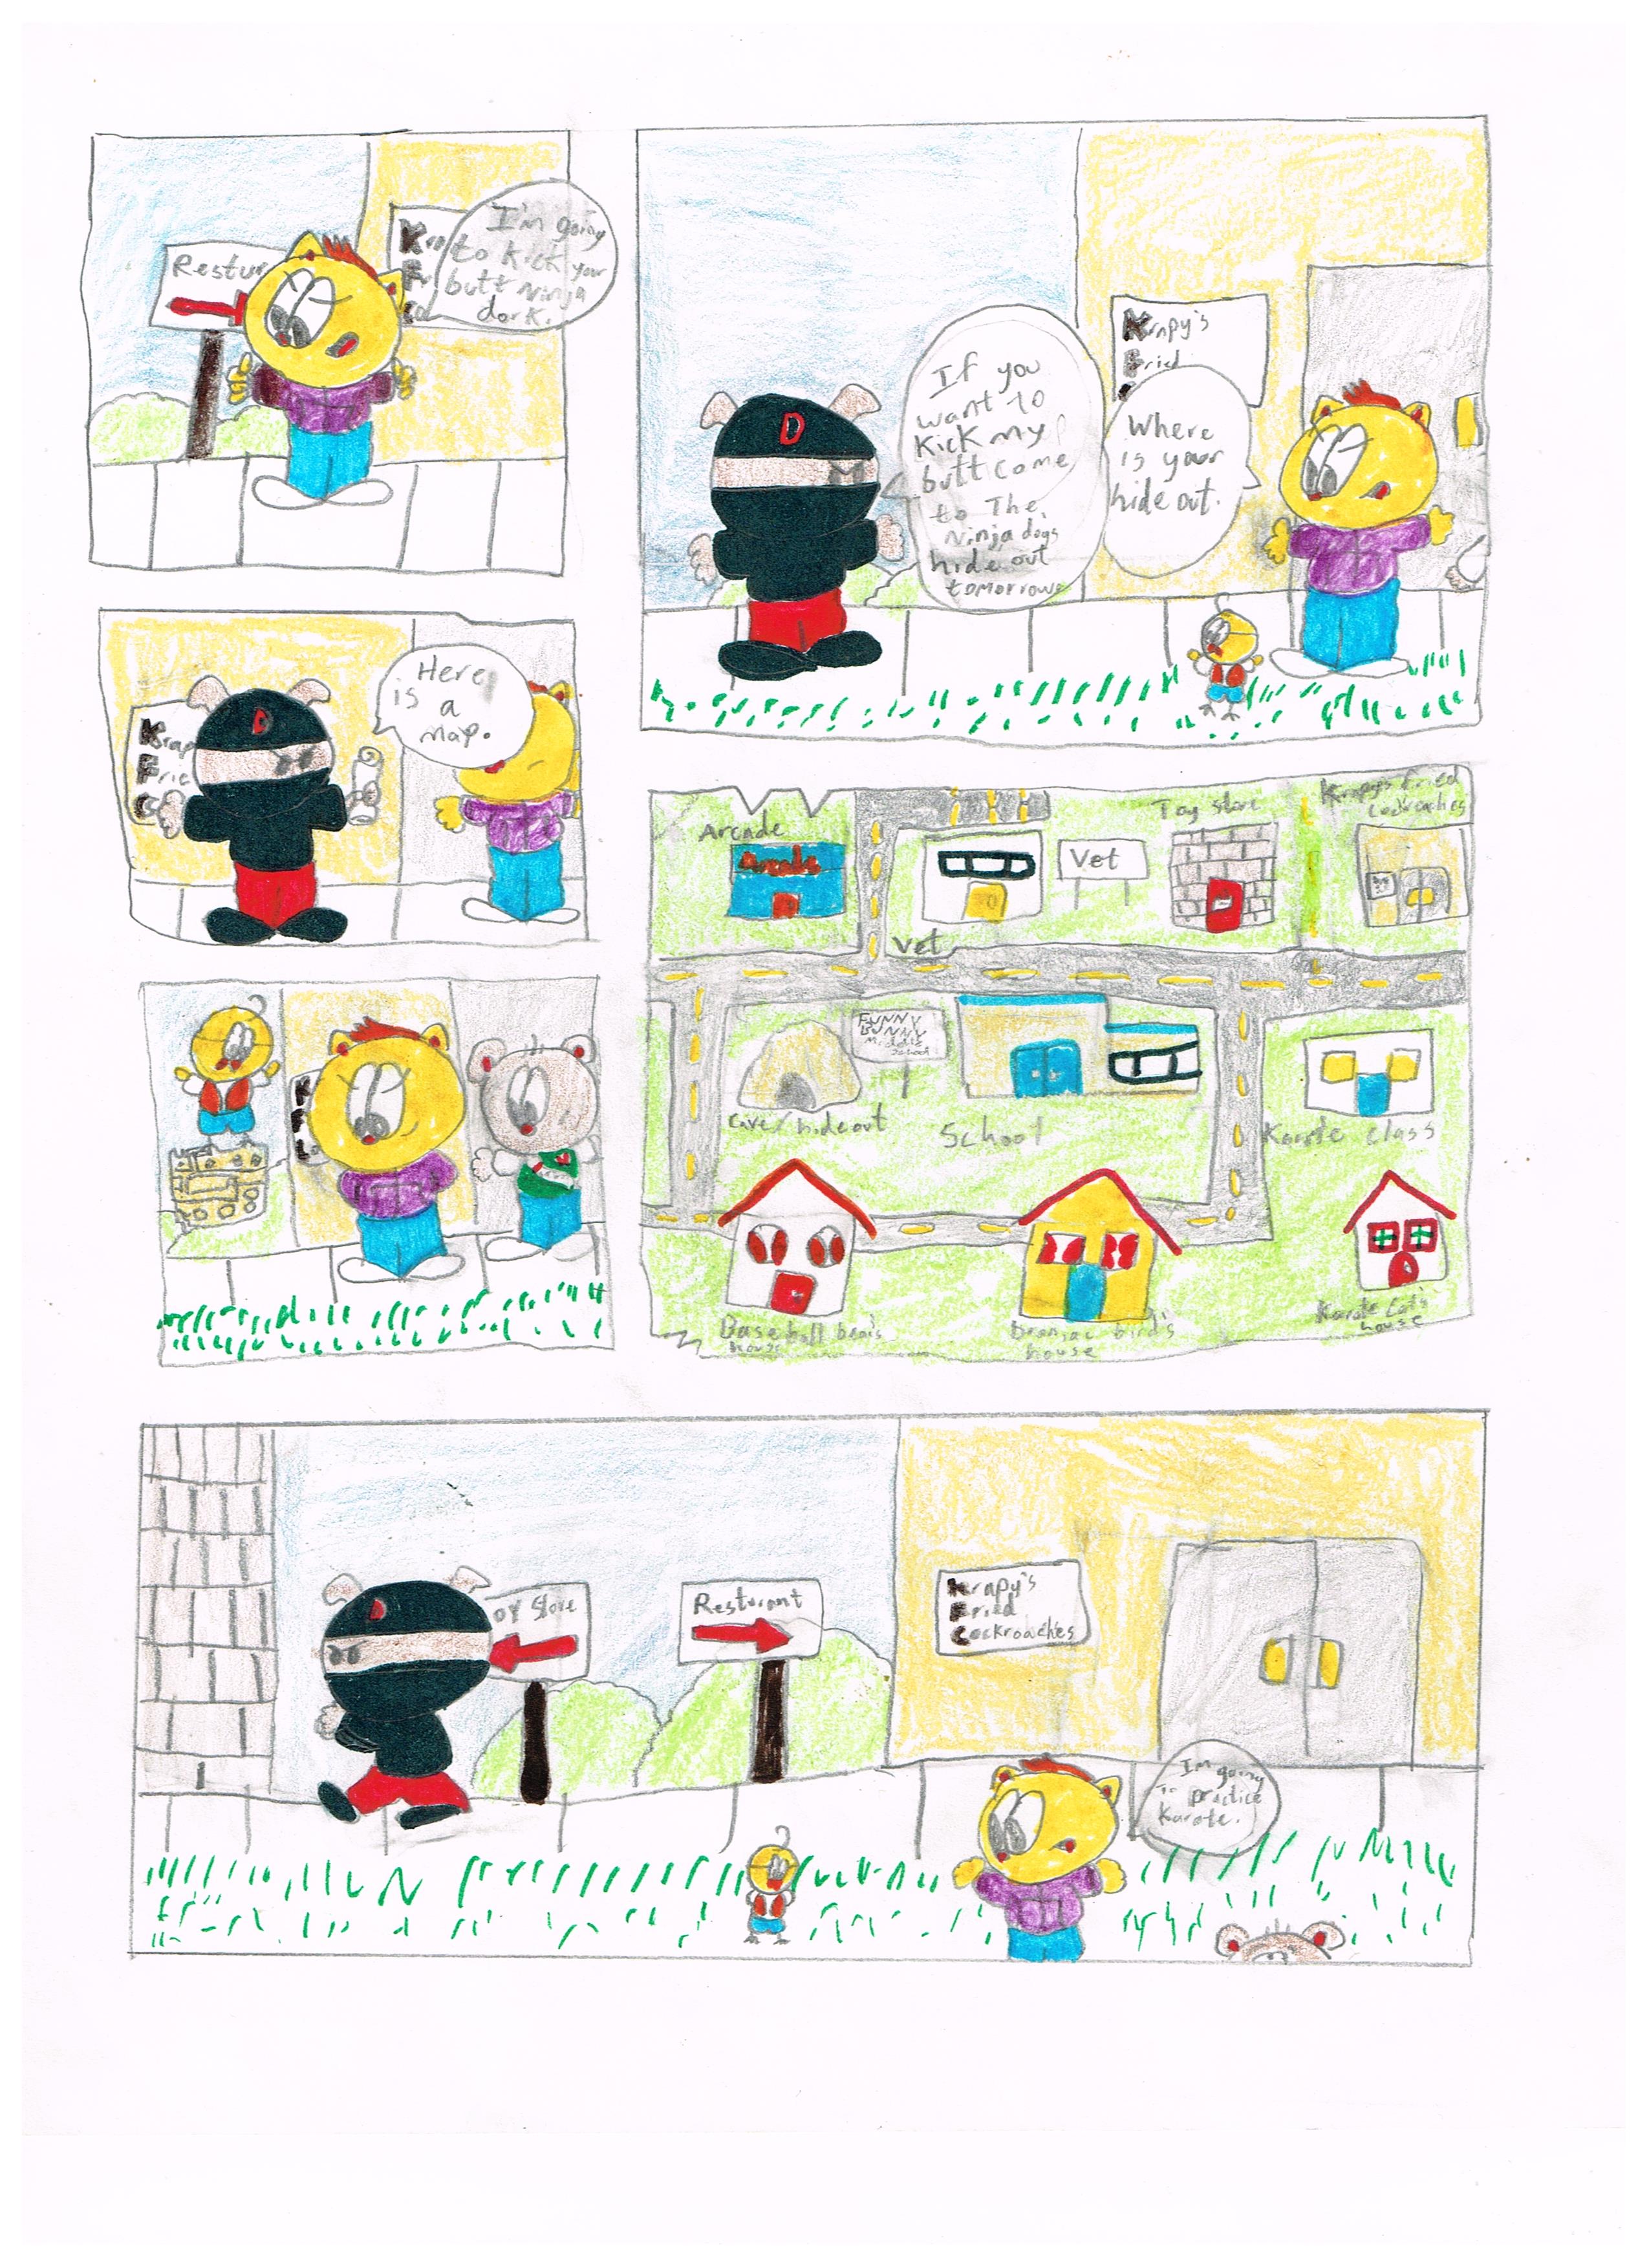 Restur
Kra
Fr
Co
I'm going
to kick your
butt ninja
dork.
D
If you
want to
kick my
butt come
to The
Ninja dogs
hide out
tomorrow
Krapy's
Fried
Where
is your
hide out.
D
Krap
Frie
C
Here
is a
map.
Arcade
Arcade
Vet
Vet
Toy store
Krapy's fried
cockroaches
FUNNY
BUNNY
Middle
School
Cave/hideout
School
Karate class
Baseball bear's
house
Brainiac bird's
house
Karate Cat's
house
K
F
C
D
oy Store
Resturant
Krapy's
Fried
Cockroaches
I'm going
to practice
Karate.